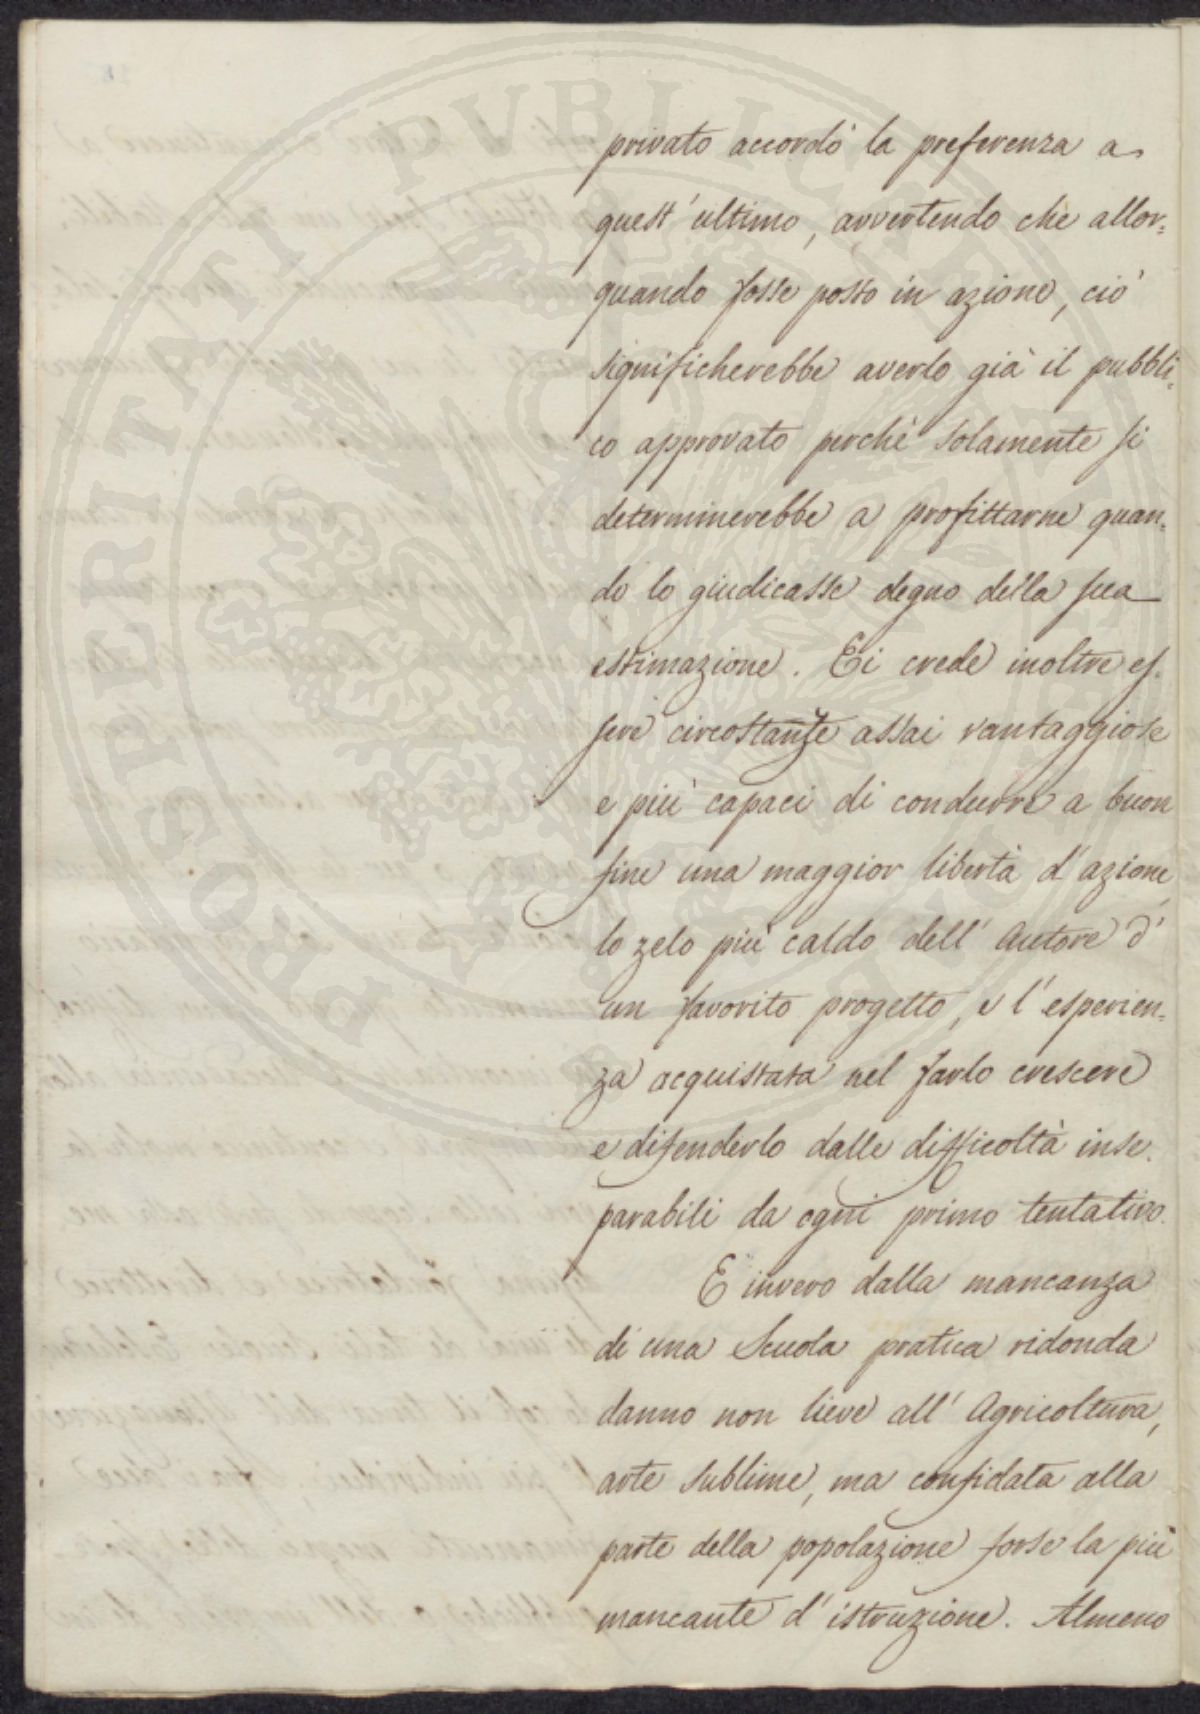 privato accordò la preferenza a
quest'ultimo, avvertendo che allor=
quando fosse posto in azione, ciò
significherebbe averlo già il pubbli=
co approvato perchè solamente si
determinerebbe a profittarne quan=
do lo giudicasse degno della sua
estimazione. Ei crede inoltre es=
sere circostanze assai vantaggiose
e più capaci di condurre a buon
fine una maggior libertà d'azione,
lo zelo più caldo dell'Autore d'
un favorito progetto, e l'esperien=
za acquistata nel farlo crescere
e difenderlo dalle difficoltà inse=
parabili da ogni primo tentativo.
E invero dalla mancanza
di una Scuola pratica ridonda
danno non lieve all'Agricoltura,
arte sublime, ma confidata alla
parte della popolazione forse la più
mancante d'istruzione. Almeno
PROSPERITATI PUBLICAE